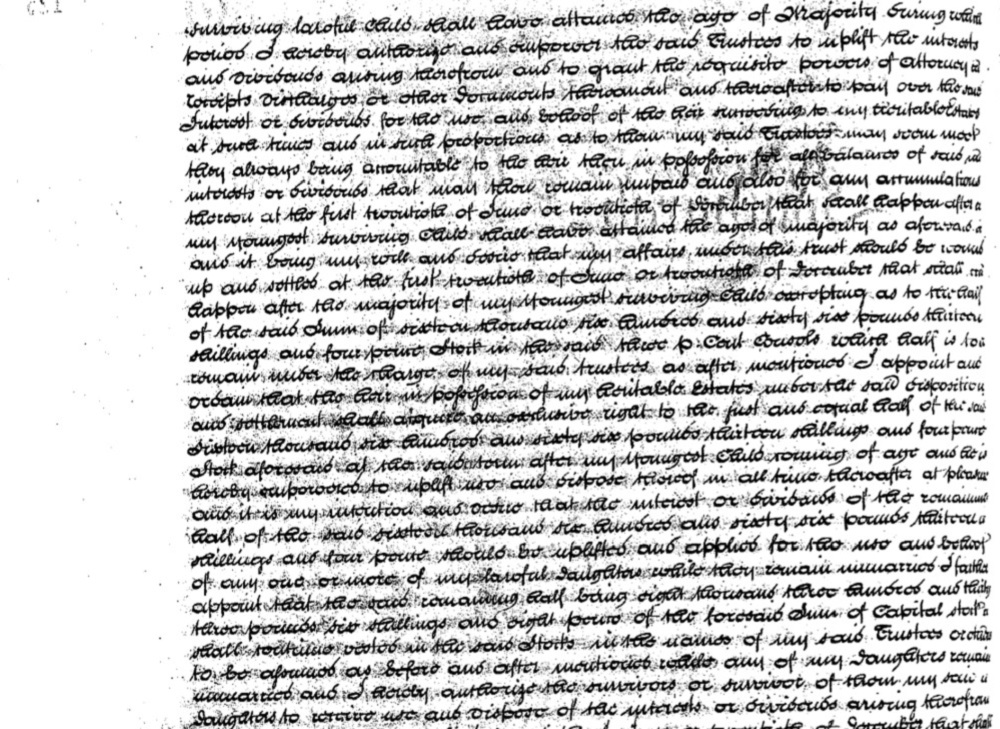 surviving lawful Child shall have attained the age of Majority during which
period I hereby authorize and empower the said Trustees to uplift the interests
and dividends arising therefrom and to grant the requisite powers of attorney
receipts discharges or other documents thereanent and thereafter to pay over the said
Interest or dividends for the use and behoof of the heir succeeding to my heritable Estates
at such times and in such proportions as to them my said Trustees may seem meet
they always being accountable to the heir then in possession for all balances of said
interests or dividends that may then remain unpaid and also for any accumulations
thereon at the first twentieth of June or twentieth of December that shall happen after
my youngest surviving Child shall have attained the age of majority as aforesaid
and it being my will and desire that my affairs under this trust should be wound
up and settled at the first twentieth of June or twentieth of December that shall
happen after the majority of my youngest surviving Child excepting as to the half
of the said Sum of sixteen thousand six hundred and sixty six pounds thirteen
shillings and four pence Stock in the said three p. Cent Consols which half is to
remain under the charge of my said trustees as after mentioned I appoint and
ordain that the heir in possession of my heritable Estates under the said disposition
and settlement shall acquire an exclusive right to the just and equal half of the said
sixteen thousand six hundred and sixty six pounds thirteen shillings and four pence
Stock aforesaid at the said term after my youngest Child coming of age and he is
hereby empowered to uplift use and dispose thereof in all time thereafter at pleasure
and it is my intention and desire that the interest or dividends of the remaining
half of the said sixteen thousand six hundred and sixty six pounds thirteen
shillings and four pence should be uplifted and applied for the use and behoof
of any one or more of my lawful daughters while they remain unmarried I farther
appoint that the said remaining half being eight thousand three hundred and thirty
three pounds six shillings and eight pence of the foresaid Sum of Capital stock
shall continue vested in the said Stocks in the names of my said Trustees or others
to be assumed as before and after mentioned while any of my Daughters remain
unmarried and I hereby authorize the survivors or survivor of them my said
daughters to receive use and dispose of the interests or dividends arising therefrom
of December that shall